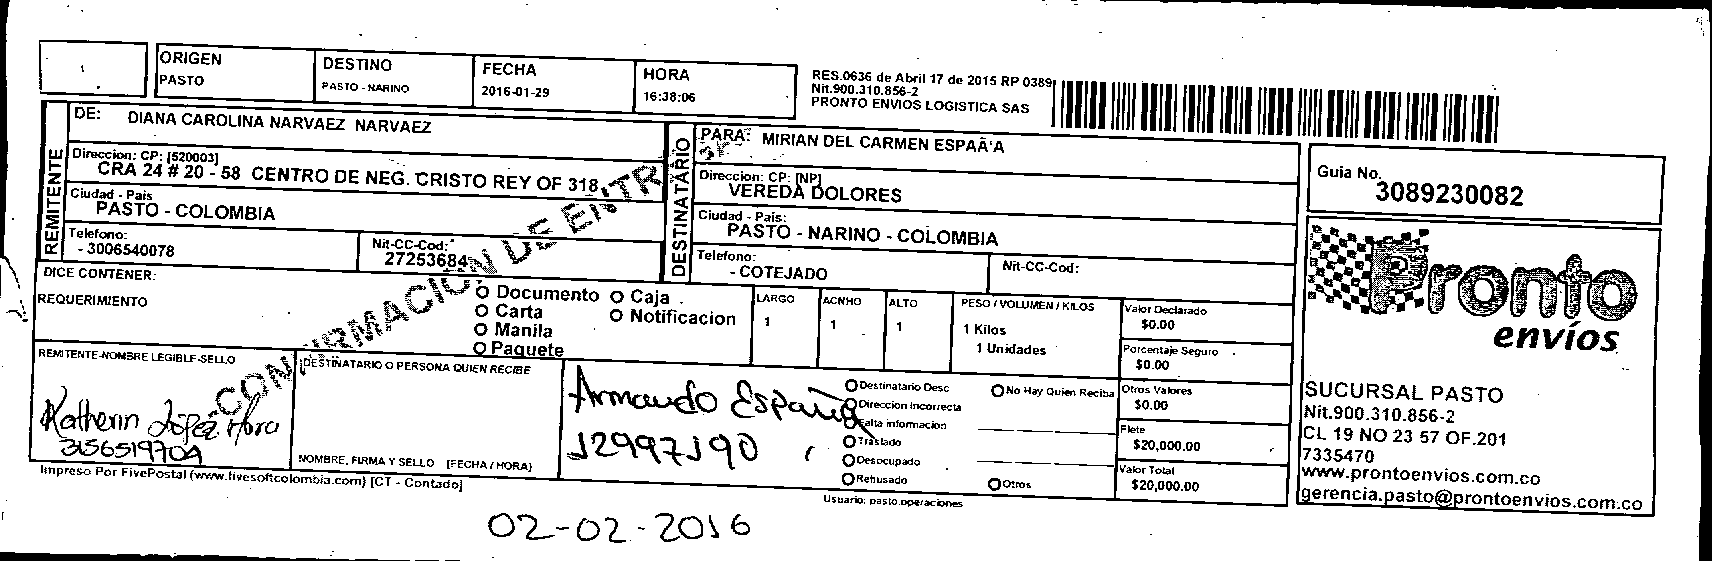 1
ORIGEN
PASTO
DESTINO
PASTO - NARINO
FECHA
2016-01-29
HORA
16:38:06
RES.0636 de Abril 17 de 2015 RP 0389
Nit.900.310.856-2
PRONTO ENVIOS LOGISTICA SAS
REMITENTE
DE: DIANA CAROLINA NARVAEZ NARVAEZ
Direccion: CP: [520003]
CRA 24 # 20 - 58 CENTRO DE NEG. CRISTO REY OF 318
Ciudad - Pais
PASTO - COLOMBIA
Telefono:
- 3006540078
Nit-CC-Cod:
27253684
DESTINATARIO
PARA: MIRIAN DEL CARMEN ESPAÃ'A
Direccion: CP: [NP]
VEREDA DOLORES
Ciudad - Pais:
PASTO - NARINO - COLOMBIA
Telefono:
- COTEJADO
Nit-CC-Cod:
Guia No.
3089230082
DICE CONTENER:
REQUERIMIENTO
CONFIRMACION DE ENTR
O Documento O Caja
O Carta O Notificacion
O Manila
O Paquete
LARGO
1
ACNHO
1
ALTO
1
PESO / VOLUMEN / KILOS
1 Kilos
1 Unidades
Valor Declarado
$0.00
Porcentaje Seguro
$0.00
Otros Valores
$0.00
Flete
$20,000.00
Valor Total
$20,000.00
REMITENTE-NOMBRE LEGIBLE-SELLO
Katherin López Mora
3156519704
DESTINATARIO O PERSONA QUIEN RECIBE
NOMBRE, FIRMA Y SELLO [FECHA / HORA]
Armando España
12997190
O Destinatario Desc
O Direccion Incorrecta
O Falta informacion
O Traslado
O Desocupado
O Rehusado
O No Hay Quien Reciba
O Otros
Pronto
envíos
SUCURSAL PASTO
Nit.900.310.856-2
CL 19 NO 23 57 OF.201
7335470
www.prontoenvios.com.co
gerencia.pasto@prontoenvios.com.co
Impreso Por FivePostal (www.fivesoftcolombia.com) [CT - Contado]
Usuario: pasto.operaciones
02-02-2016